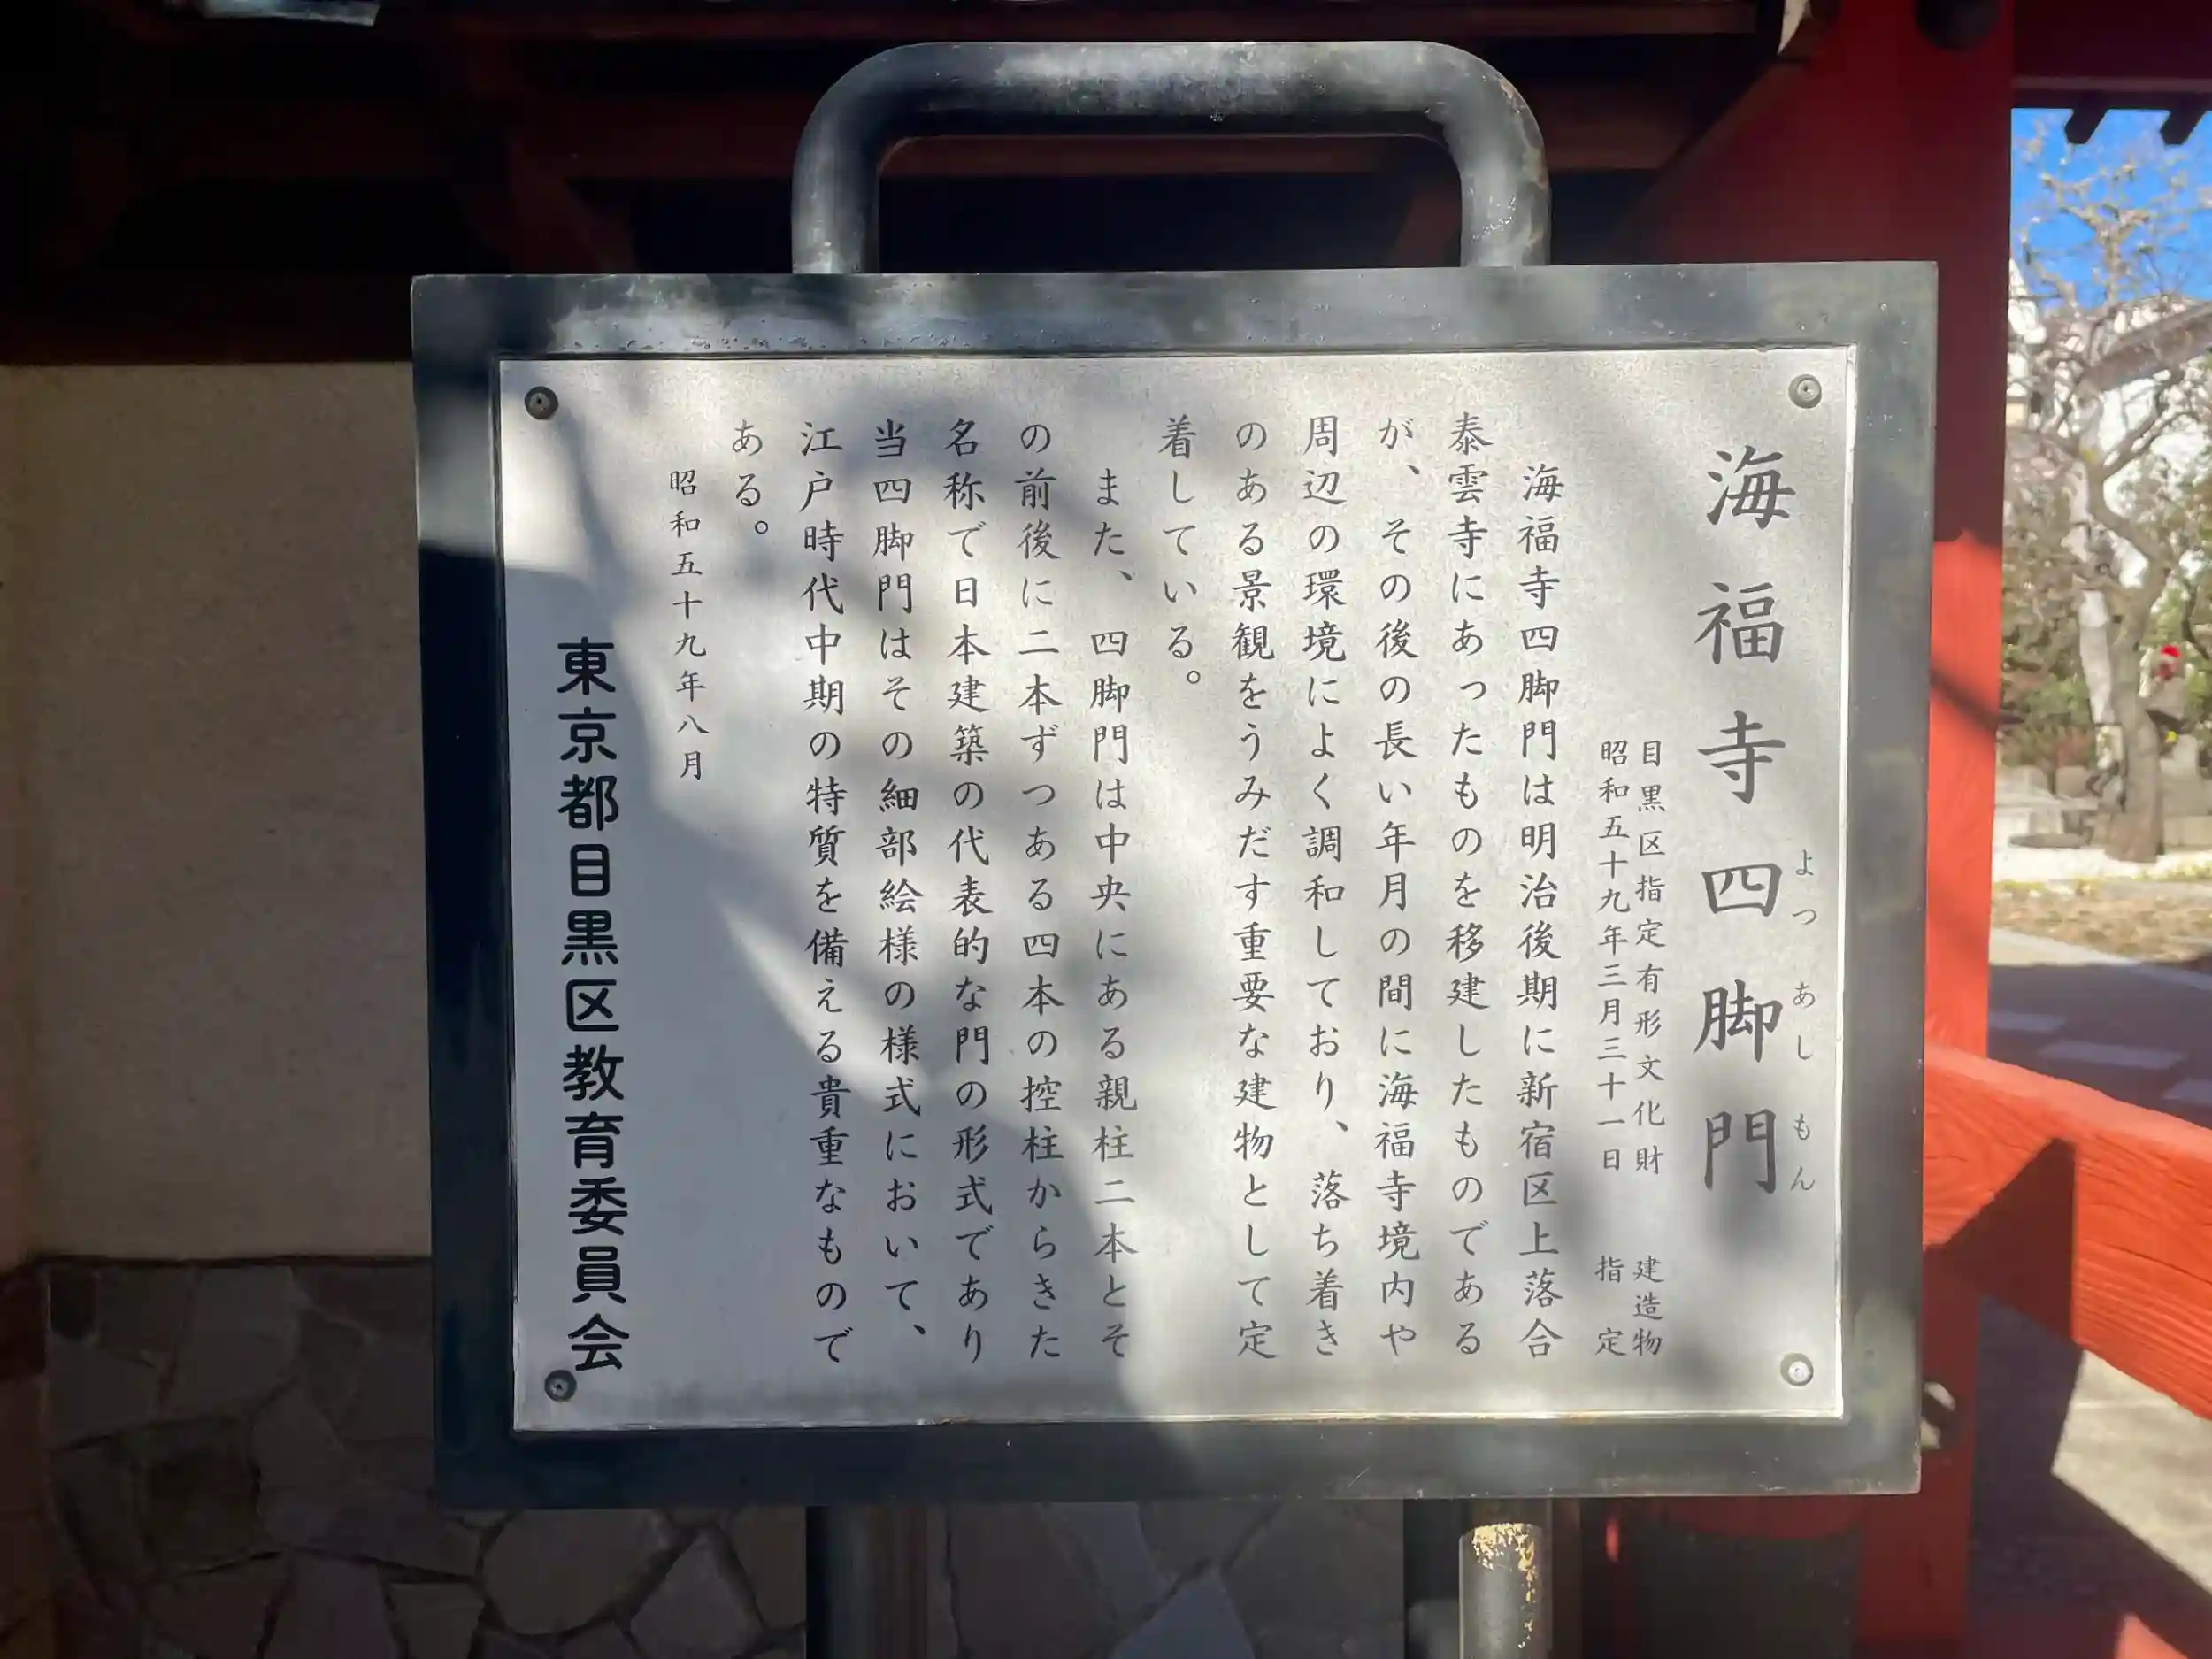 海福寺四脚門
よつあしもん
目黒区指定有形文化財　建造物
昭和五十九年三月三十一日　指定
海福寺四脚門は明治後期に新宿区上落合
泰雲寺にあったものを移建したものである
が、その後の長い年月の間に海福寺境内や
周辺の環境によく調和しており、落ち着き
のある景観をうみだす重要な建物として定
着している。
また、四脚門は中央にある親柱二本とそ
の前後に二本ずつある四本の控柱からきた
名称で日本建築の代表的な門の形式であり
当四脚門はその細部絵様の様式において、
江戸時代中期の特質を備える貴重なもので
ある。
昭和五十九年八月
東京都目黒区教育委員会